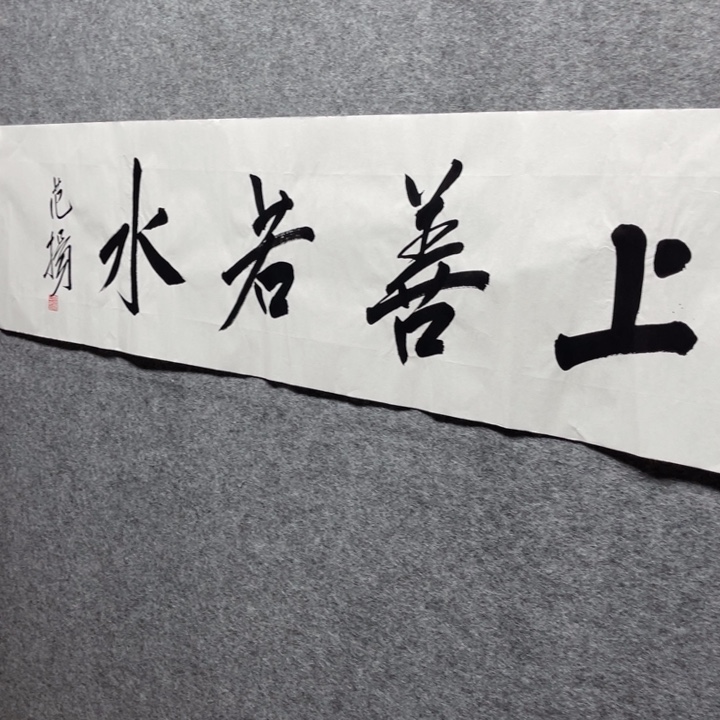 上善若水
范扬